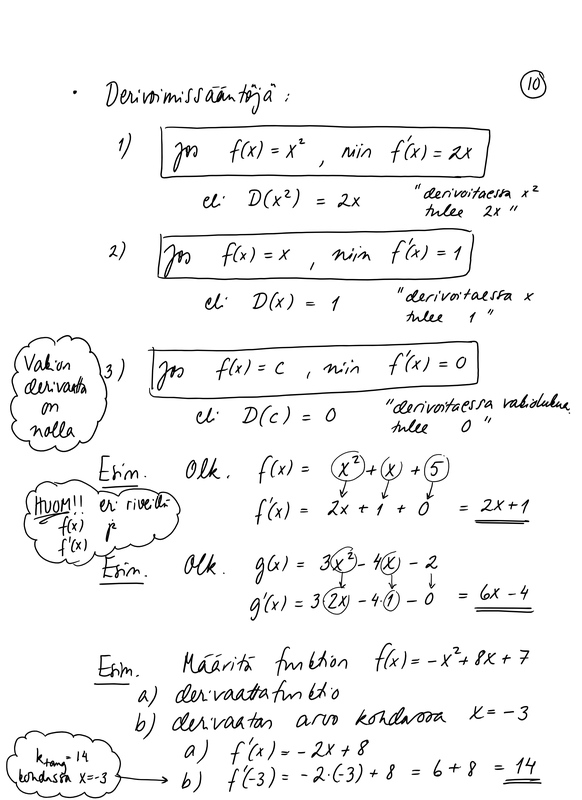 10
• Derivoimissääntöjä:
1) Jos f(x) = x², niin f'(x) = 2x
eli D(x²) = 2x
"derivoitaessa x²
tulee 2x"
2) Jos f(x) = x, niin f'(x) = 1
eli D(x) = 1
"derivoitaessa x
tulee 1"
Vakion
derivaatta
on
nolla
3) Jos f(x) = c, niin f'(x) = 0
eli D(c) = 0
"derivoitaessa vakioluku,
tulee 0"
Esim. Olk. f(x) = x² + x + 5
f'(x) = 2x + 1 + 0 = 2x+1
HUOM!! eri riveillä
f(x) ja
f'(x)
Esim. Olk. g(x) = 3x² - 4x - 2
g'(x) = 3·2x - 4·1 - 0 = 6x - 4
Esim. Määritä funktion f(x) = -x² + 8x + 7
a) derivaattafunktio
b) derivaatan arvo kohdassa x = -3
a) f'(x) = -2x + 8
k_tang = 14
kohdassa x=-3
b) f'(-3) = -2·(-3) + 8 = 6 + 8 = 14